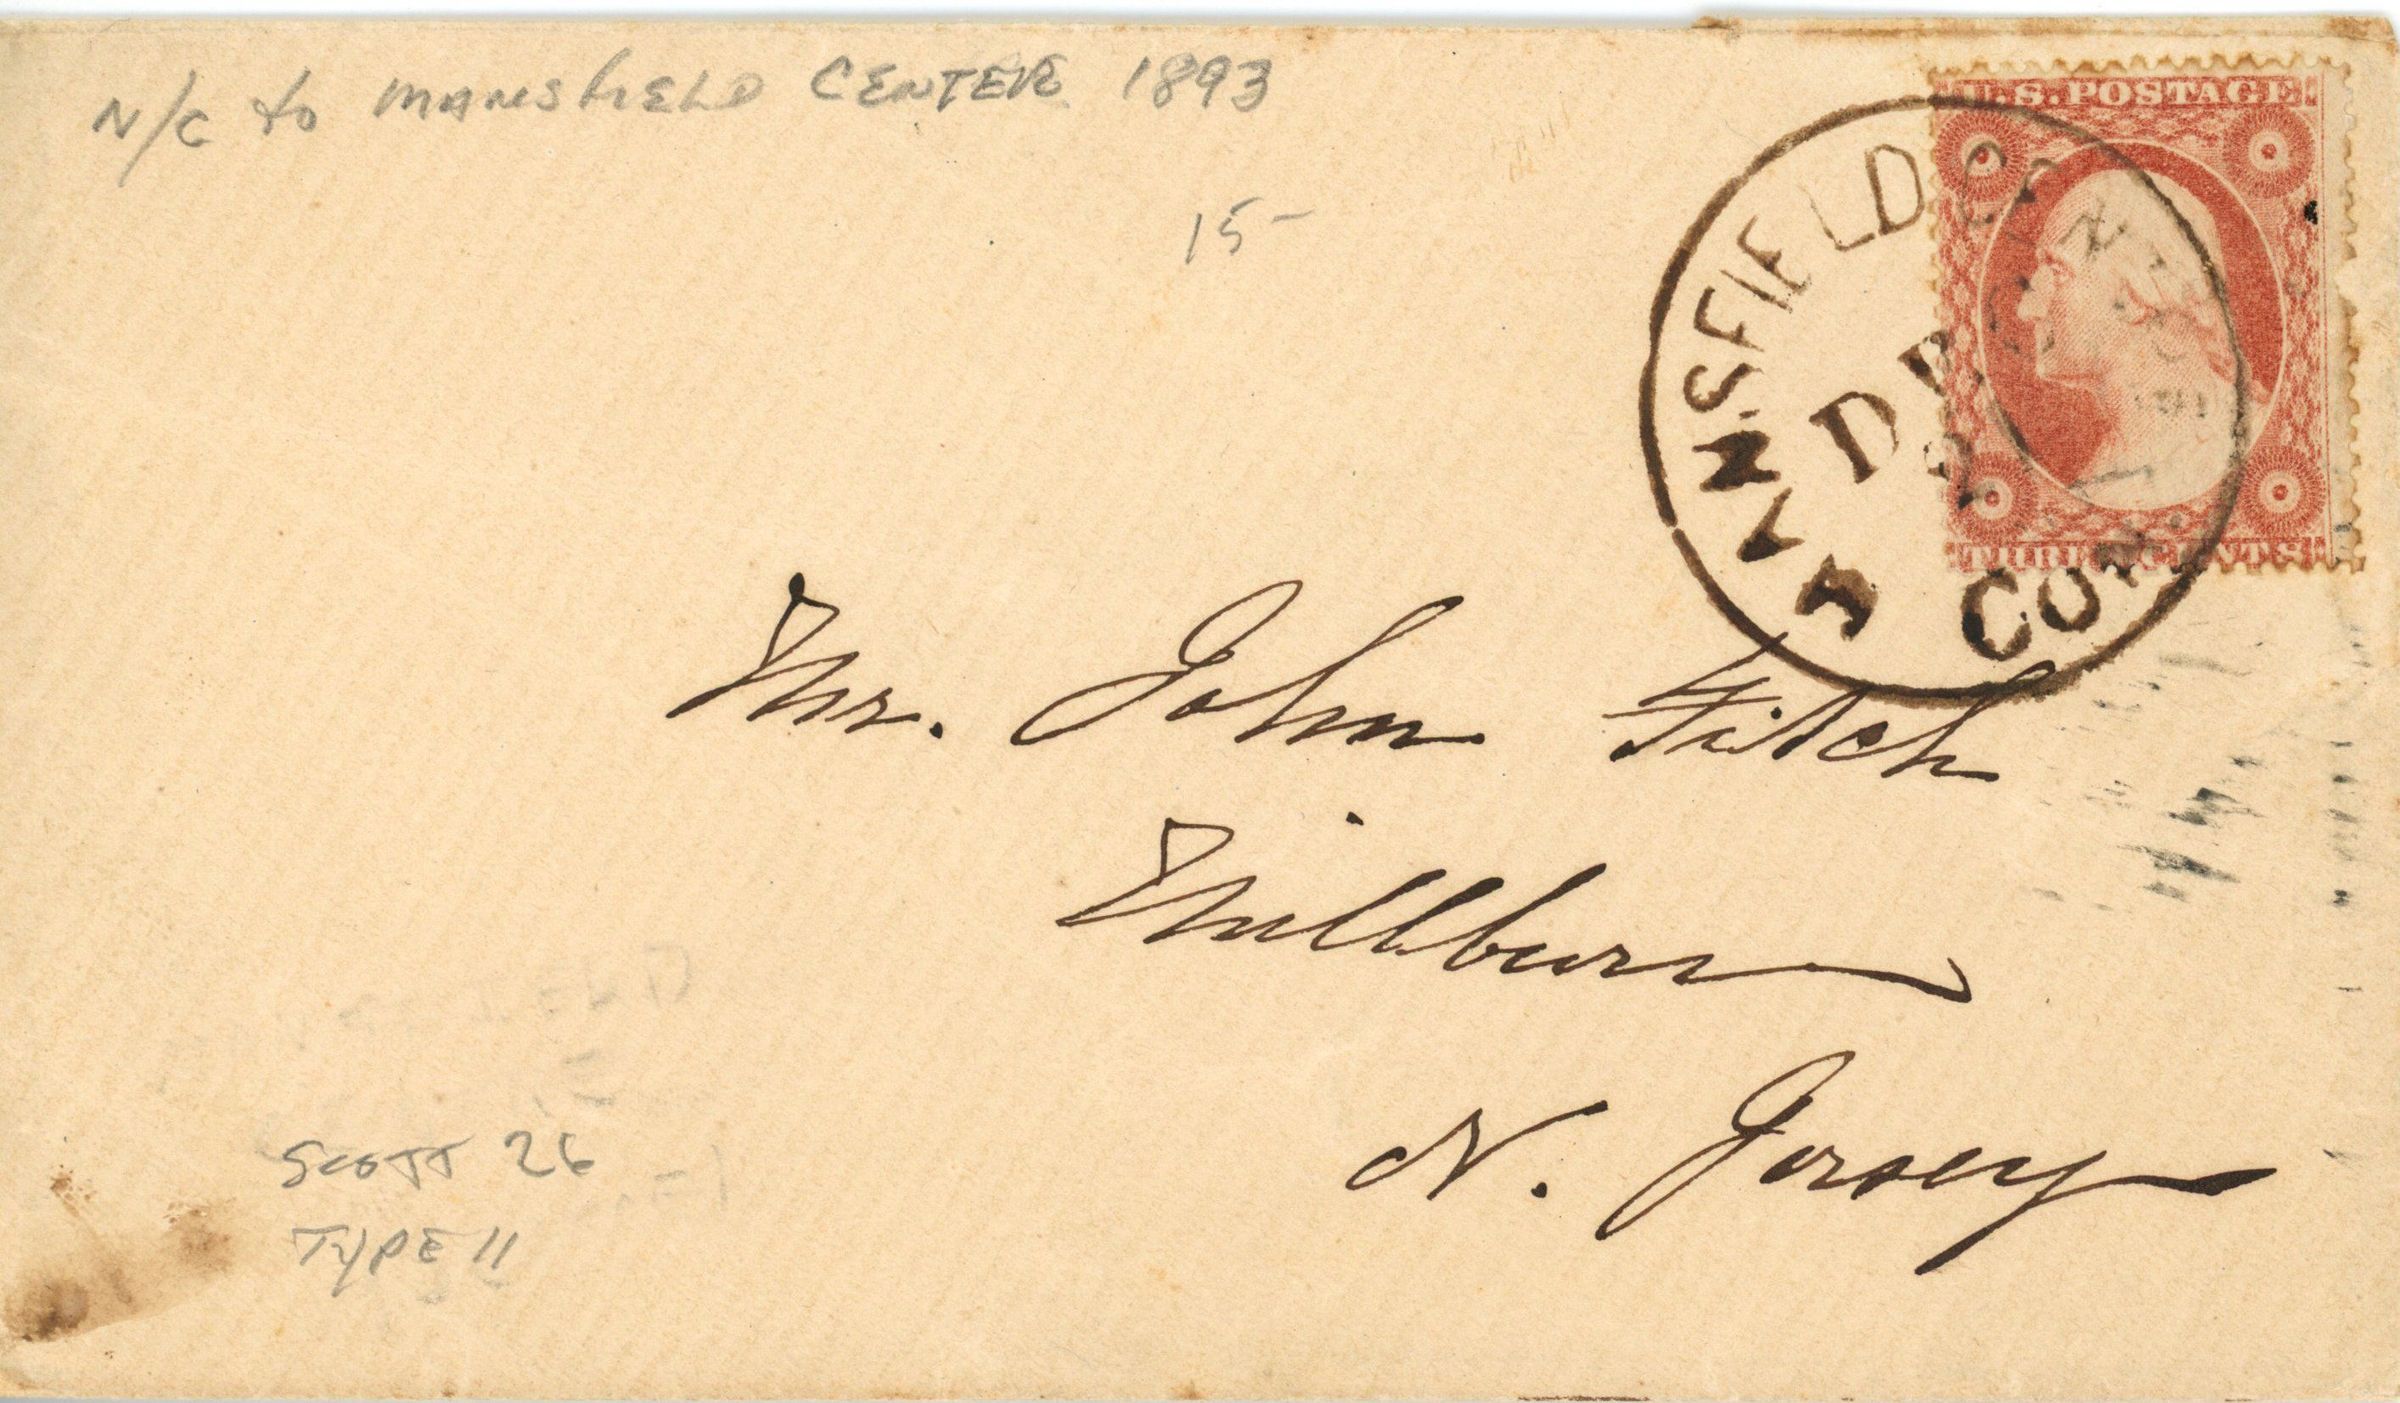 N/C to MANSFIELD CENTER 1893
15-
U.S. POSTAGE
THREE CENTS
MANSFIELD CENTRE
DE
CON.
Mr. John Fitch
Millburn
N. Jersey
SCOTT 26
TYPE II